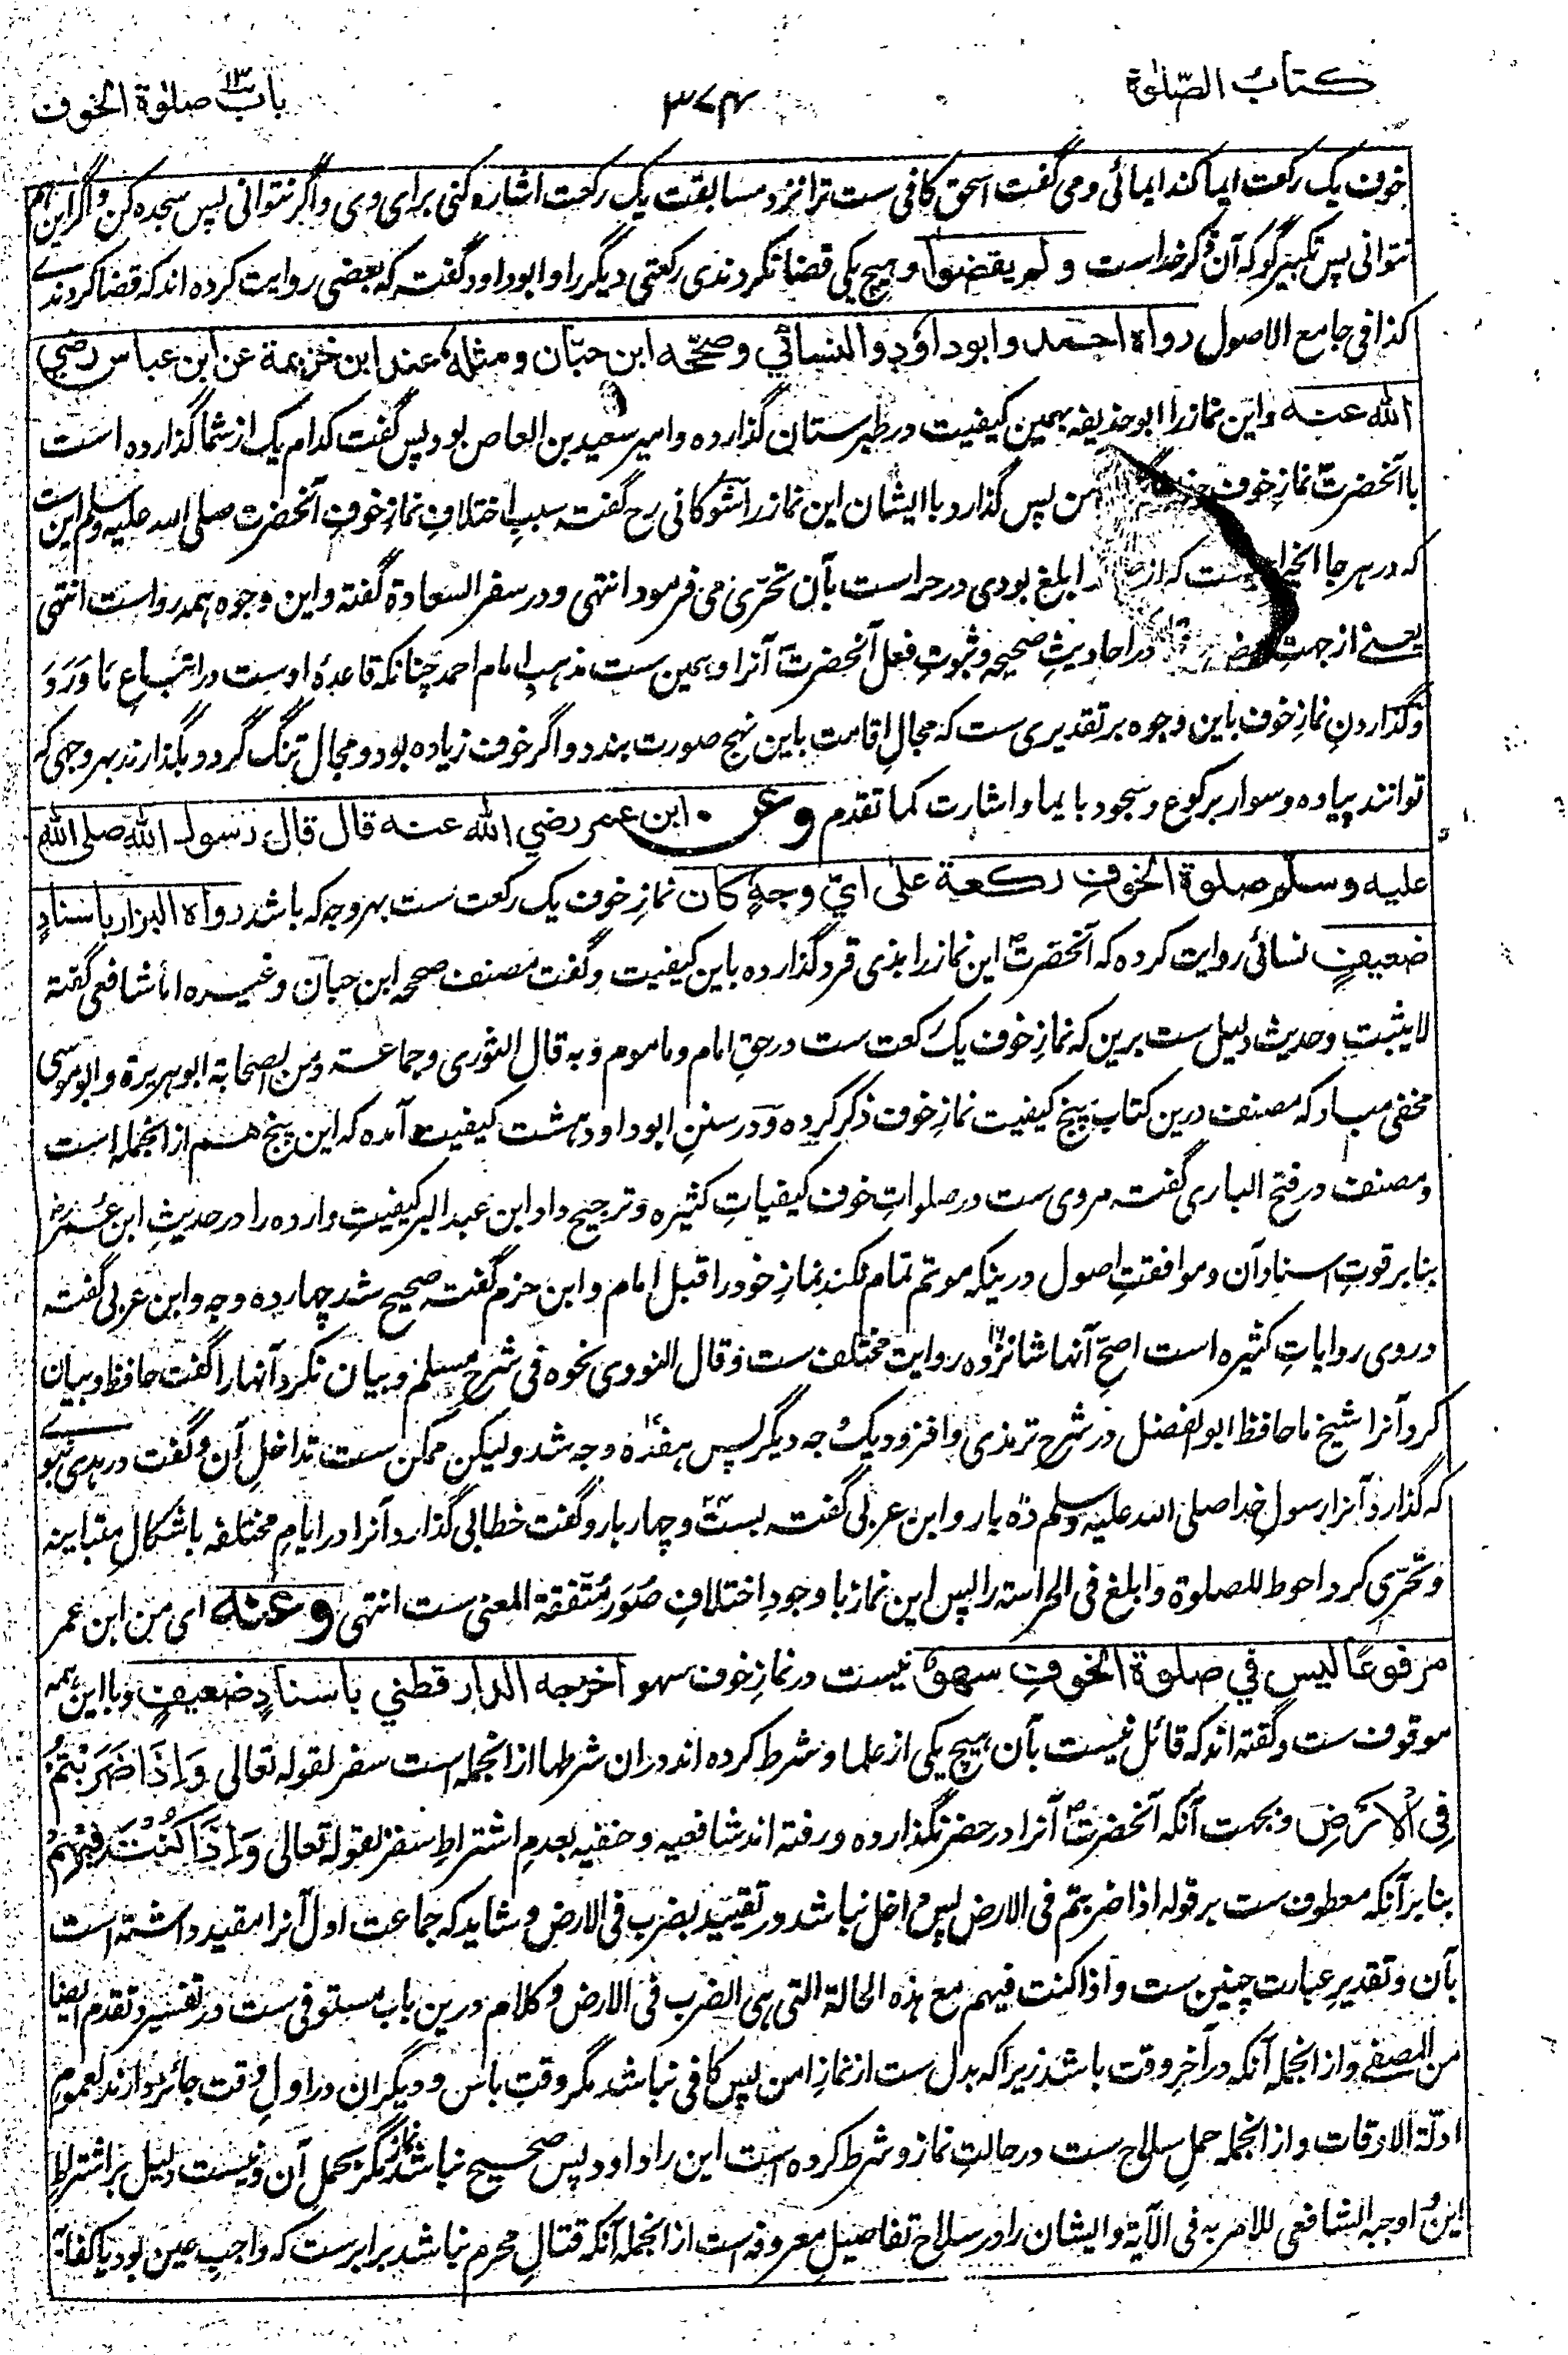 كتاب الصّلوٰة
۳۷۴
باب ۱۳ صلوٰة الخوف
خوف یک رکعت ایما کند ایمائی و می گفت اسحق کافی ست ترا نزد مسابقت یک رکعت اشاره کنی برای وی و اگر نتوانی پس سجده کن و اگر این هم
نتوانی پس تکبیر گو که آن ذکر خداست ولم یقضوا و هیچ یکی قضا نکردندی رکعتی دیگر را و ابوداود گفت که بعضی روایت کرده اند که قضا کردندے
کذا فی جامع الاصول رواه احمد وابوداؤد والنسائي وصحّحه ابن حبّان ومثله عند ابن خزيمة عن ابن عباس رضي
الله عنه و این نماز را ابو حذیفه بهمین کیفیت در طبرستان گذارده و امیر سعید بن العاص بود پس گفت کدام یک از شما گذارده است
با آنحضرتؐ نمازِ خوف من پس گذارد با ایشان این نماز را شوکانی رح گفته سببِ اختلافِ نمازِ خوفِ آنحضرت صلی الله علیه وسلم این ست
که در هر جا ابلغ بودی در حراست بآن تحرّی می فرمود انتهی و در سفر السعادة گفته و این وجوه همه رواست انتهی
یعنے از جهتِ در احادیثِ صحیحه و ثبوتِ فعل آنحضرتؐ آنرا و همین ست مذهبِ امام احمد چنانکه قاعدهٔ اوست در اتباعِ مَا وَرَدَ
و گذاردنِ نمازِ خوف باین وجوه بر تقدیری ست که مجالِ اقامت باین نهج صورت بندد و اگر خوف زیاده بود و مجال تنگ گردد بگذارند بهر وجهی که
توانند پیاده و سوار برکوع و سجود با یما و اشارت کما تقدم وعن ابن عمر رضي الله عنه قال قال رسول الله صلى الله
عليه وسلم صلوة الخوفِ ركعة على ايّ وجهٍ كان نمازِ خوف یک رکعت ست بهر وجه که باشد رواه البزار باسنادٍ
ضعيفٍ نسائی روایت کرده که آنحضرتؐ این نماز را بذی قرد گذارده باین کیفیت و گفت مصنف صححه ابن حبان و غیره اما شافعی گفته
لا یثبت و حدیث دلیل ست برین که نمازِ خوف یک رکعت ست در حقِ امام و ماموم و به قال الثوری و جماعة و من الصحابة ابو هریرة و ابو موسی
مخفی مباد که مصنف درین کتاب پنج کیفیت نمازِ خوف ذکر کرده و در سننِ ابوداود هشت کیفیت آمده که این پنج هم از انجمله است
و مصنف در فتح الباری گفته مروی ست در صلواتِ خوف کیفیاتِ کثیره و ترجیح داد ابن عبد البر کیفیتِ وارده را در حدیثِ ابن عمرؓ
بنا بر قوتِ اسناد آن و موافقتِ اصول درینکه موتم تمام نکند نمازِ خود را قبل امام و ابن حزم گفته صحیح شد چهارده وجه و ابن عربی گفته
در وی روایاتِ کثیره است اصحِّ آنها شانزده روایت مختلف ست و قال النووی نحوه فی شرحِ مسلم و بیان نکرد آنها را گفت حافظ و بیان
کرد آنرا شیخ ما حافظ ابو الفضل در شرحِ ترمذی و افزود یک وجه دیگر پس هفده وجه شد و لیکن ممکن ست تداخل آن و گفت در هدی نبوے
که گذارد آنرا رسولِ خدا صلی الله علیه وسلم ده بار و ابن عربی گفته بست و چهار بار و گفت خطابی گذارد آنرا در ایامِ مختلفه باشکالِ متباینه
و تحرّی کرد احوط للصلوة و ابلغ فی الحراسة را پس این نماز با وجودِ اختلافِ صُوَر مُتفقة المعنی ست انتهی وعنه ای من ابن عمر
مرفوعًا ليس في صلوة الخوفِ سهوٌ نیست در نمازِ خوف سهو اخرجه الدارقطني باسنادٍ ضعيفٍ و با این همه
موقوف ست و گفته اند که قائل نیست بآن هیچ یکی از علما و شرط کرده اند دران شرطها از انجمله است سفر لقوله تعالی وَاِذَا ضَرَبْتُمْ
فِی الْاَرْضِ و بجهت آنکه آنحضرتؐ آنرا در حضر نگذارده و رفته اند شافعیه و حنفیه بعدمِ اشتراطِ سفر لقوله تعالی وَاِذَا كُنْتَ فِيْهِمْ
بنا بر آنکه معطوف ست بر قوله اذا ضربتم فی الارض پس داخل نباشد در تقیید بضرب فی الارض و شاید که جماعت اول آنرا مقید داشته است
بآن و تقدیرِ عبارت چنین ست و اذا کنت فیهم مع هذه الحالة التی هی الضرب فی الارض و کلام درین باب مستوفی ست در تفسیر و تقدم ایضا
من المصفے و از انجمله آنکه در آخرِ وقت باشد زیرا که بدل ست از نمازِ امن پس کافی نباشد مگر وقتِ باس و دیگران در اولِ وقت جائز دارند لعمومِ
ادلّة الاوقات و از انجمله حملِ سلاح ست در حالتِ نماز و شرط کرده است این را داود پس صحیح نباشد نماز مگر بحملِ آن و نیست دلیل بر اشتراطِ
این و اوجبه الشافعی للامر به فی الآیة و ایشان را در سلاح تفاصیلِ معروفه است از انجمله آنکه قتالِ محرم نباشد برابرست که واجبِ عین بود یا کفایة